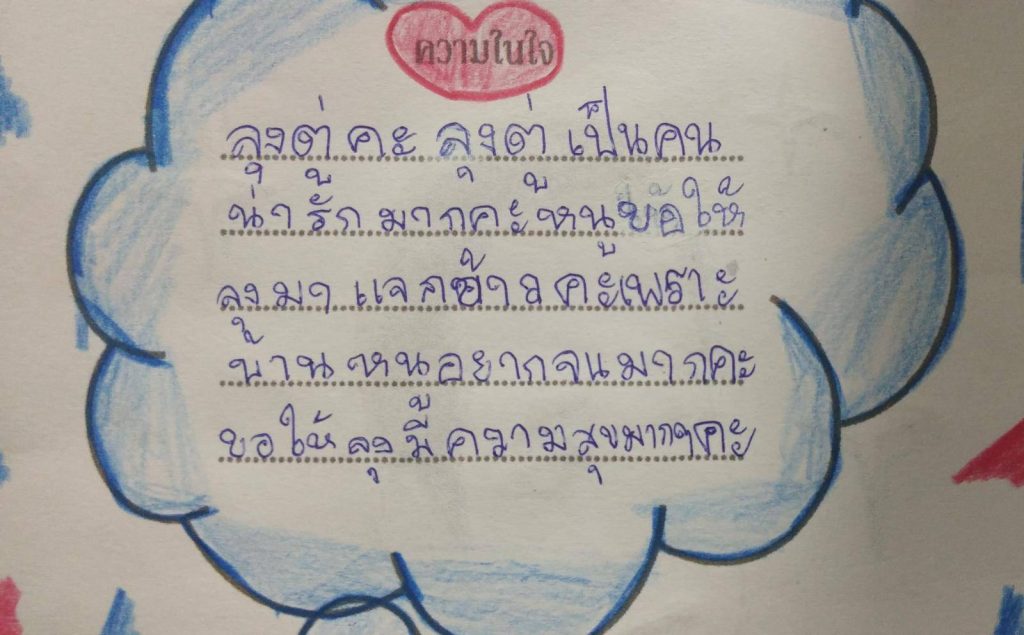 ความในใจ
ลุงตู่ คะ ลุงตู่ เป็นคน
น่ารักมากคะ หนูขอให้
ลุงมาแจกข้าวคะเพราะ
บ้านหนูอยากจนมากคะ
ขอให้ลุงมีความสุขมากๆคะ